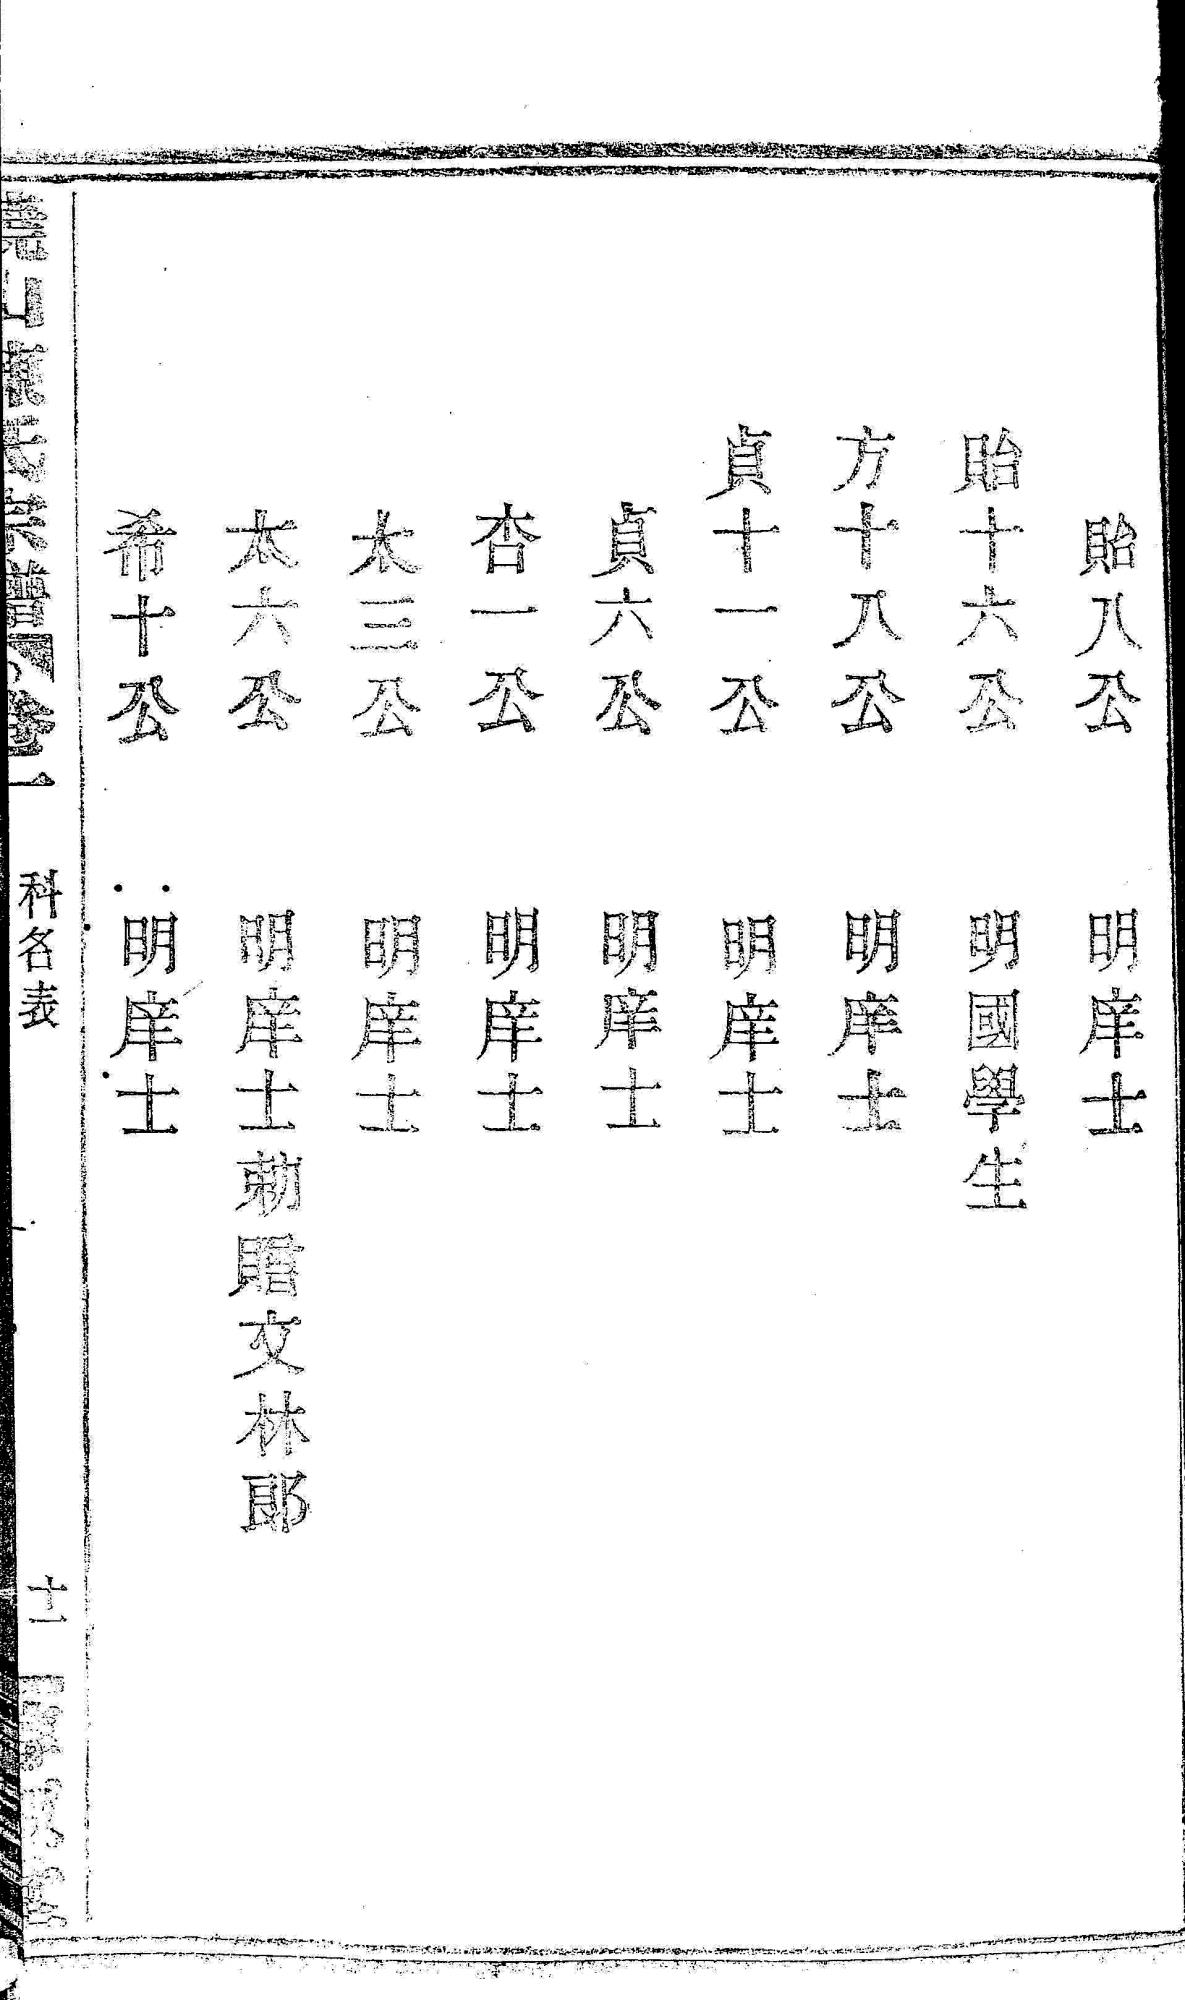 貽八公 明庠士
貽十六公 明國學生
方十八公 明庠士
貞十一公 明庠士
貞六公 明庠士
杏一公 明庠士
太三公 明庠士
太六公 明庠士勅贈文林郎
希十公 明庠士
山 氏宗譜 卷一 科名表 十一